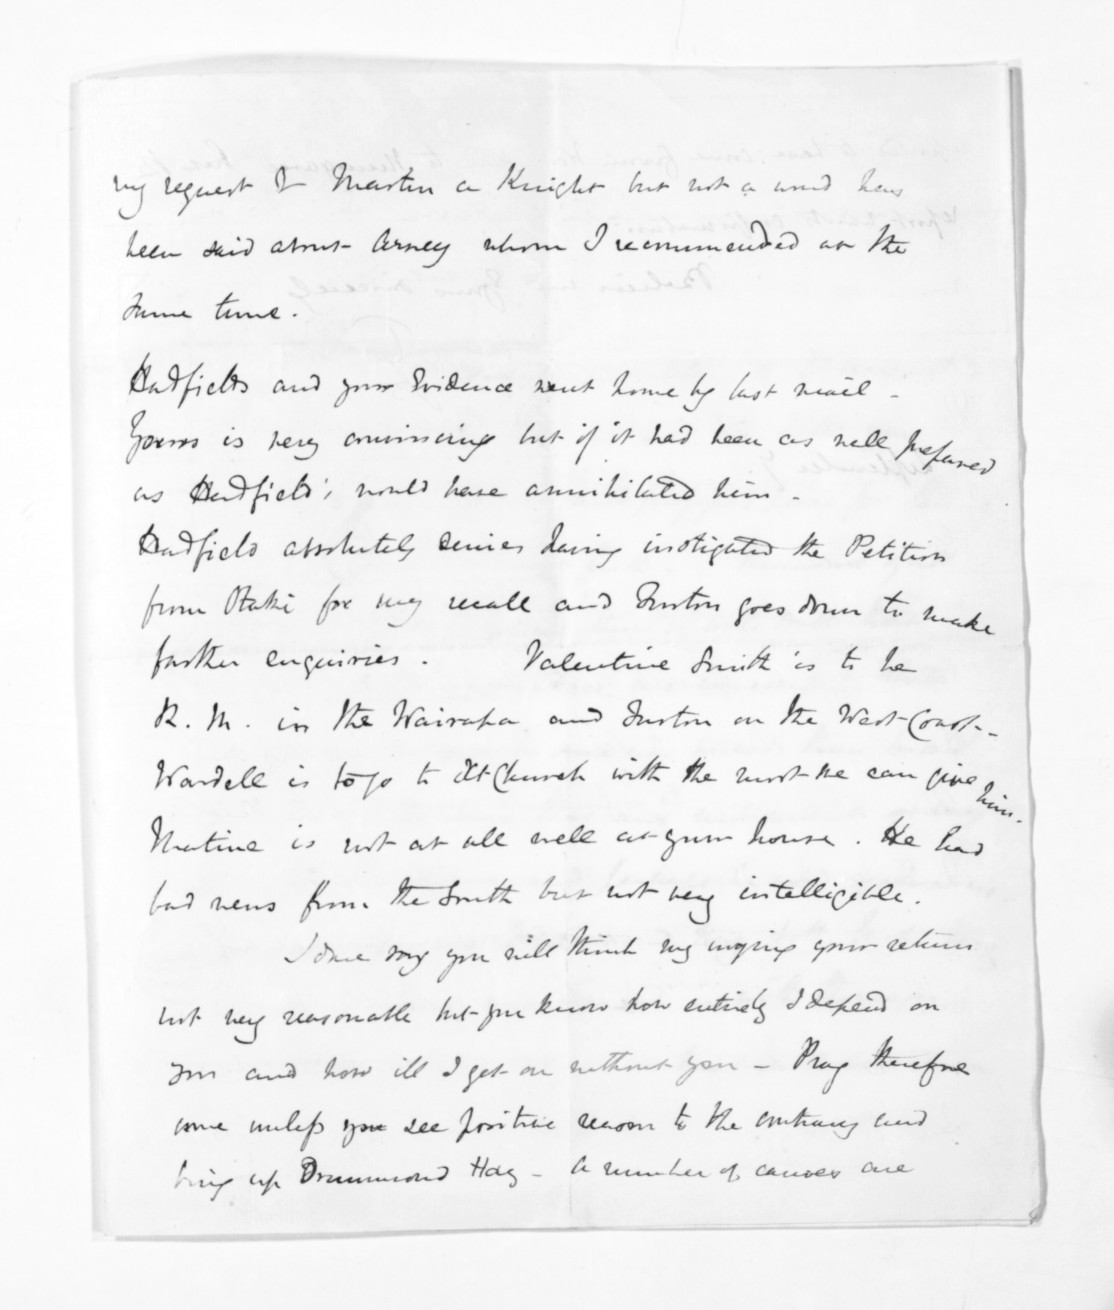 my request & Martin a Knight but not a word has
been said about Arney whom I recommended at the
same time.
Hadfields and your Evidence went home by last mail -
Yours is very convincing but if it had been as well prepared
as Hadfield's, would have annihilated him -
Hadfield absolutely denies having instigated the Petition
from Otaki for my recall and Turton goes down to make
further enquiries. Valentine Smith is to be
R. M. in the Wairapa and Turton on the West Coast -
Wardell is to go to Xt Church with the most we can give him.
is not at all well at your house. He had
bad news from the South but not very intelligible.
I dare say you will think my urging your return
not very reasonable but you know how entirely I depend on
you and how ill I get on without you - Pray therefore
come unless you see positive reason to the contrary and
bring up Drummond Hay - A number of causes are